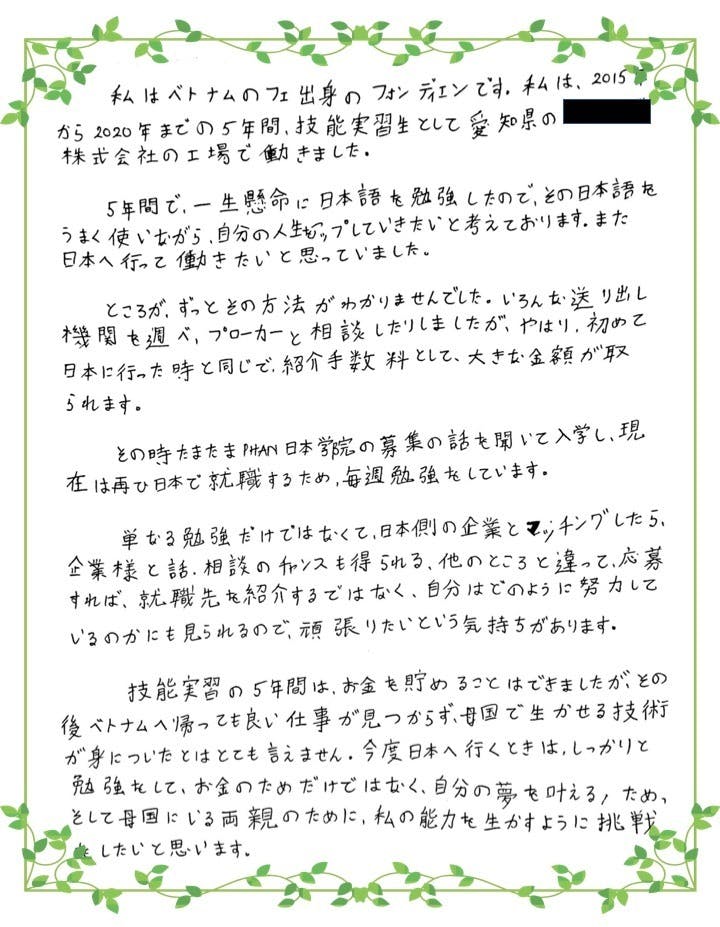 私はベトナムのフエ出身のフォンディエンです。私は、2015年
から2020年までの5年間、技能実習生として愛知県の
株式会社の工場で働きました。
5年間で、一生懸命に日本語を勉強したので、その日本語を
うまく使いながら、自分の人生をアップしていきたいと考えております。また
日本へ行って働きたいと思っていました。
ところが、ずっとその方法がわかりませんでした。いろんな送り出し
機関を週べ、ブローカーと相談したりしましたが、やはり、初めて
日本に行った時と同じで、紹介手数料として、大きな金額が取
られます。
その時たまたまPHAN日本学院の募集の話を聞いて入学し、現
在は再び日本で就職するため、毎週勉強をしています。
単なる勉強だけではなくて、日本側の企業とマッチングしたら、
企業様と話、相談のチャンスも得られる、他のところと違って、応募
すれば、就職先を紹介するではなく、自分はどのように努力して
いるのかにも見られるので、頑張りたいという気持ちがあります。
技能実習の5年間は、お金を貯めることはできましたが、その
後ベトナムへ帰っても良い仕事が見つからず、母国で生かせる技術
が身についたとはとても言えません。今度日本へ行くときは、しっかりと
勉強をして、お金のためだけではなく、自分の夢を叶える、ため、
そして母国にいる両親のために、私の能力を生かすように挑戦
をしたいと思います。